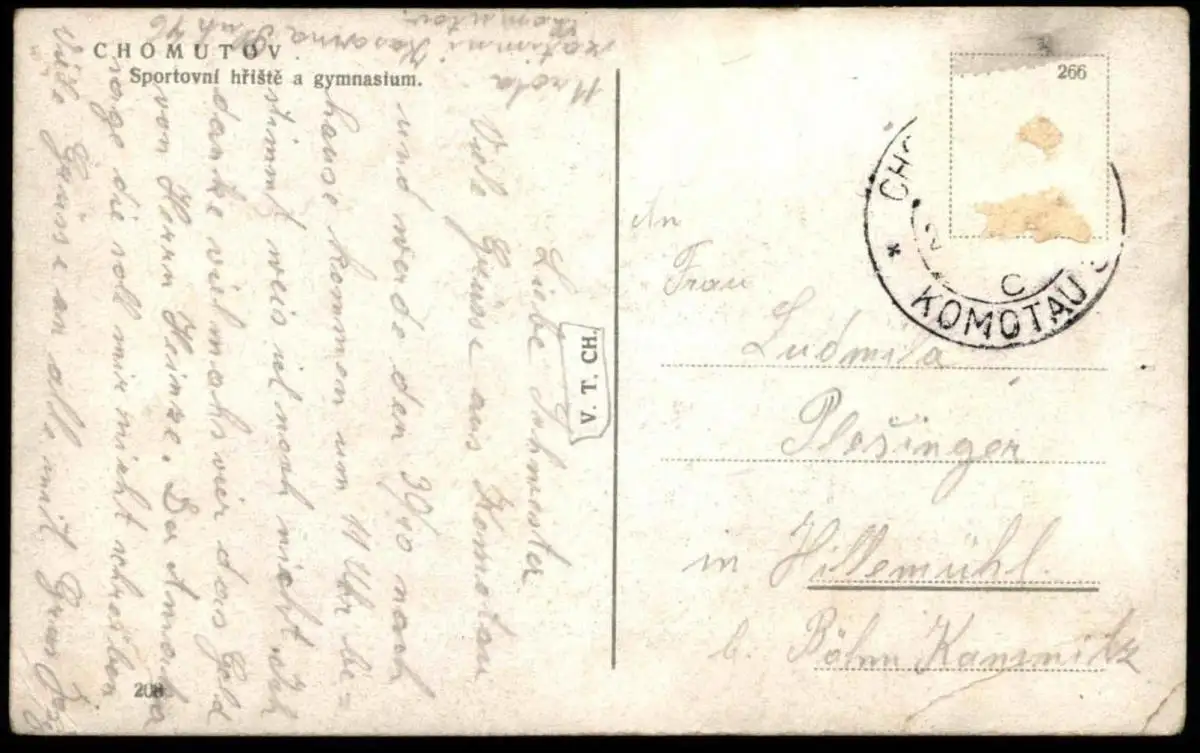 CHOMUTOV.
Sportovní hřiště a gymnasium.
Liebe Schwester
Viele Grüsse aus Komotau
und werde den 30/10 nach
hause kommen um 11 Uhr be=
stimmt weis ich noch nicht Ich
danke vielmahls vier das Geld
von Herrn Heinze. Der
sage die soll mir nicht schreiben
Viele Grüsse an alle mit Gruss
V. T. CH.
208
266
CHO
2
C
* KOMOTAU
An
Frau
Ludmila
Plešinger
in Hillemühl.
b. Böhm Kamnitz